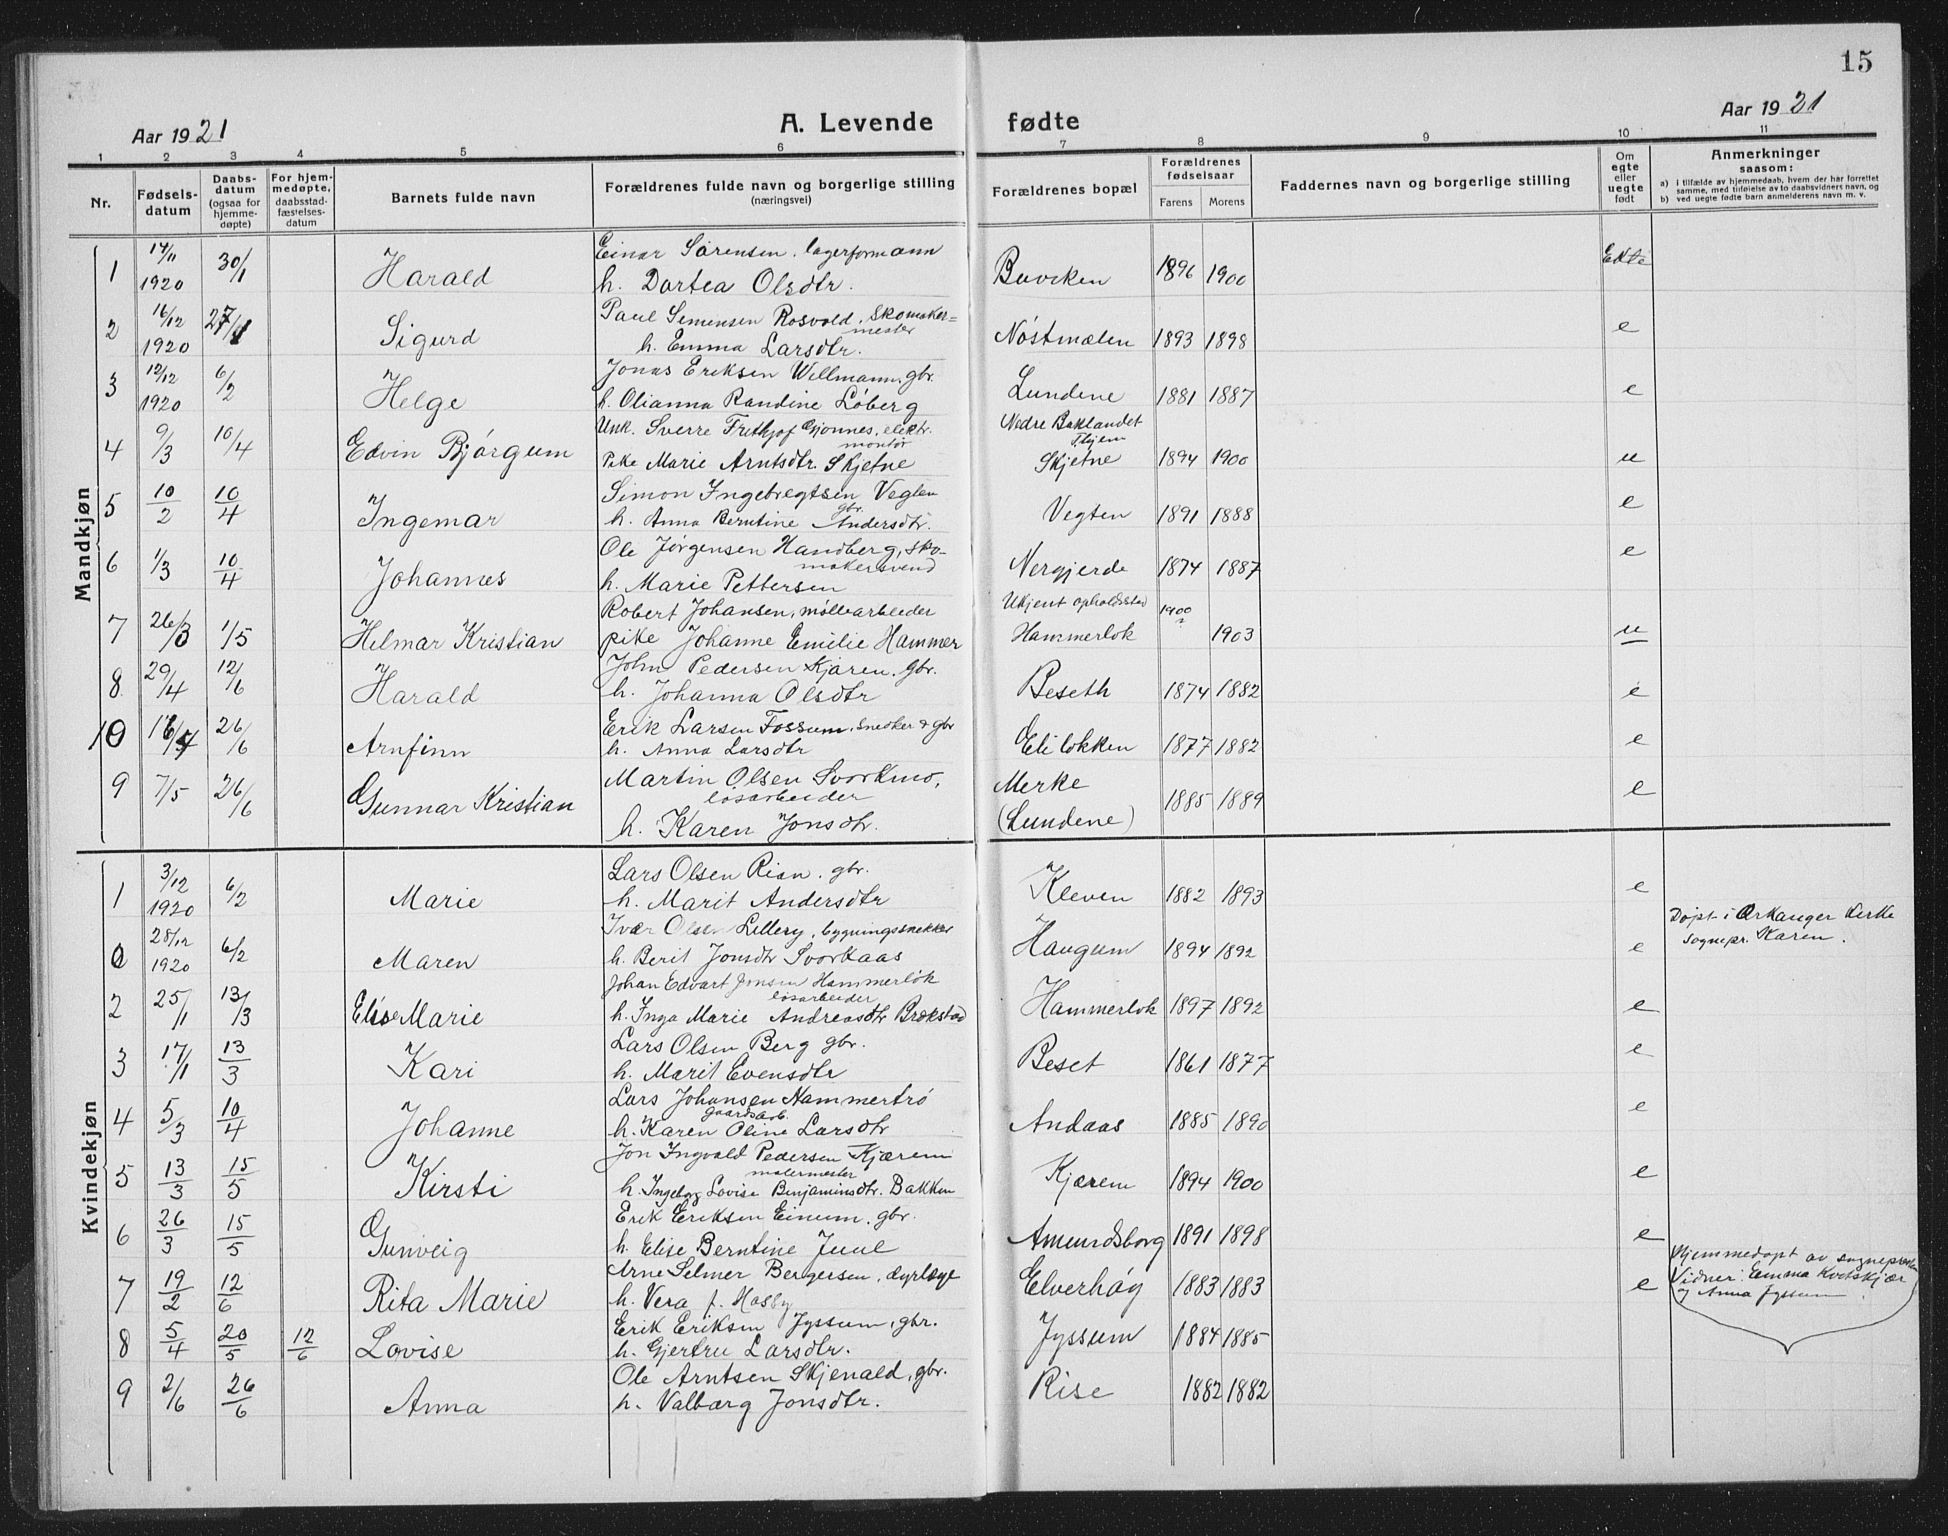 15
Aar 1921
A. Levende
fødte
Aar 1921
1 2 3 4 5 6 7 8 9 10 11
Nr.
Fødsels-
datum
Daabs-
datum
(ogsaa for
hjemme-
døpte)
For hjem-
medøpte,
daabsstad-
fæstelses-
datum
Barnets fulde navn
Forældrenes fulde navn og borgerlige stilling
(næringsvei)
Forældrenes bopæl
Forældrenes
fødselsaar
Farens Morens
Faddernes navn og borgerlige stilling
Om
egte
eller
uegte
født
Anmerkninger
saasom:
a) i tilfælde av hjemmedaab, hvem der har forrettet
samme, med tilføielse av to daabsvidners navn, og
b) ved uegte fødte barn anmelderens navn m. v.
Mandkjøn
1 14/11 1920 30/1 Harald Einar Sørensen, lagerformann Buvcken 1896 1900 Ekte
h. Dortea Olsdtr.
2 16/12 1920 Sigurd Paul Simensen Rosvold, skomaker=
mester
h. Emma Larsdtr. Nøstmælen 1893 1898 e
3 12/12 1920 6/2 Helge Jonas Eriksen Willmann, gbr.
h. Olianna Randine Løberg Lundene 1881 1887 e
4 9/3 10/4 Edvin Bjørgum Unk. Sverre Frithjof Gjonnes, elektr.
montør Nedre Baklandet
Thjem
Pike Marie Arntsdtr. Skjetne Skjetne 1894 1900 u
5 10/2 10/4 Ingemar Simon Ingebregtsen Vegten
gbr.
h. Anna Berntine Andersdtr. Vegten 1891 1888 e
6 1/3 10/4 Johannes Ole Jørgensen Handberg, sko-
makersvend
h. Marie Pettersen Nergjerde 1874 1887 e
7 26/3 1/5 Hilmar Kristian Robert Johansen, møllearbeider Ukjent opholdssted 1900
pike Johanne Emilie Hammer Hammerlok 1903 u
8. 29/4 12/6 Harald John Pedersen Kjären. gbr.
h. Johanna Olsdtr Beseth 1874 1882 e
10 26/6 Arnfinn Erik Larsen Fossum, snedker & gbr
h. Anna Larsdtr Elilokken 1877 1882 e
9 7/5 26/6 Gunnar Kristian Martin Olsen Svorkmo,
løsarbeider
h. Karen Jonsdtr. Merke
(Lundene) 1885 1889 e
Kvindekjøn
1 3/12 1920 6/2 Marie Lars Olsen Rian. gbr.
h. Marit Andersdtr Kleven 1882 1893 e
0 28/12 1920 6/2 Maren Ivar Olsen Lillery, bygningssnekker
h. Berit Jonsdtr Svorkaas Haugum 1894 1892 e Døpt i Orkanger kirke
sognepr. Karen.
2 25/1 13/3 Elise Marie Johan Edvart Jensen Hammerløk
løsarbeider
h. Inga Marie Andreasdtr Brøkstad Hammerlok 1897 1892 e
3 17/1 13/3 Kari Lars Olsen Berg gbr.
h. Marit Evensdtr Beset 1861 1877 e
4 5/3 10/4 Johanne Lars Johansen Hammertrø
gaardsarb.
h. Karen Oline Larsdtr Andaas 1885 1890 e
5 13/3 15/5 Kirsti Jon Ingvald Pedersen Kjærem
malermester
h. Ingeborg Lovise Benjaminsdtr. Bakken Kjærem 1894 1900 e
6 26/3 15/5 Gunveig Erik Eriksen Einum, gbr.
h. Elise Berntine Juul Amundsborg 1891 1898 e
7 19/2 12/6 Rita Marie Arne Selmer Bergersen, dyrlæge
h. Vera f. Hasby Elverhøy 1883 1883 e Hjemmedøpt av sognepresten
Vidner: Emma Kvotskjær
og Anna Jyssum.
8 5/4 20/5 12/6 Lovise Erik Eriksen Jyssum, gbr.
h. Gjertru Larsdtr. Jyssum 1884 1885
9 2/6 26/6 Anna Ole Arntsen Skjenald, gbr.
h. Valbarg Jonsdtr. Rise 1882 1882